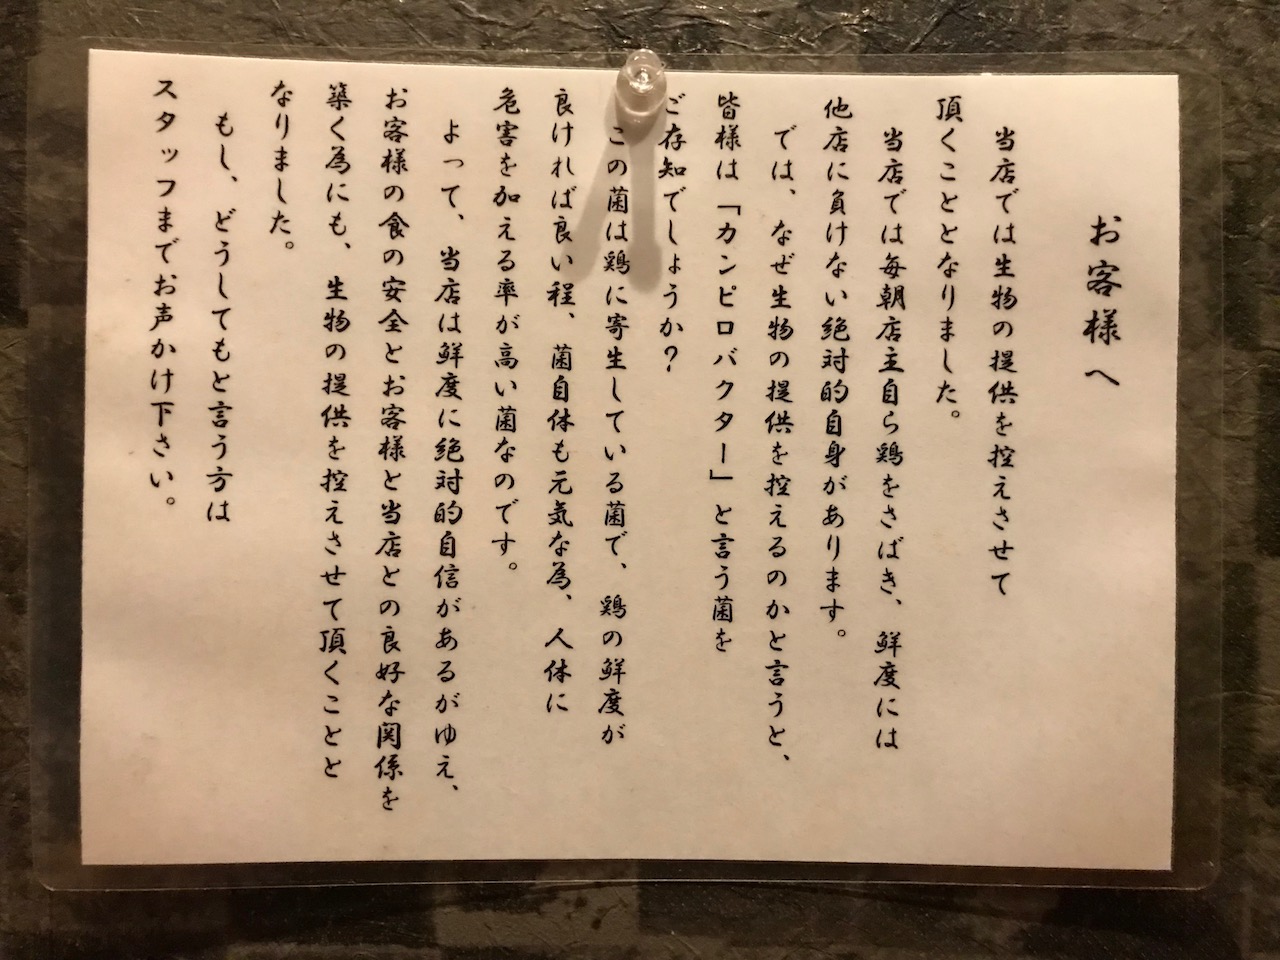 お客様へ
当店では生物の提供を控えさせて
頂くこととなりました。
当店では毎朝店主自ら鶏をさばき、鮮度には
他店に負けない絶対的自身があります。
では、なぜ生物の提供を控えるのかと言うと、
皆様は「カンピロバクター」と言う菌を
ご存知でしょうか?
この菌は鶏に寄生している菌で、鶏の鮮度が
良ければ良い程、菌自体も元気な為、人体に
危害を加える率が高い菌なのです。
よって、当店は鮮度に絶対的自信があるがゆえ、
お客様の食の安全とお客様と当店との良好な関係を
築く為にも、生物の提供を控えさせて頂くことと
なりました。
もし、どうしてもと言う方は
スタッフまでお声かけ下さい。